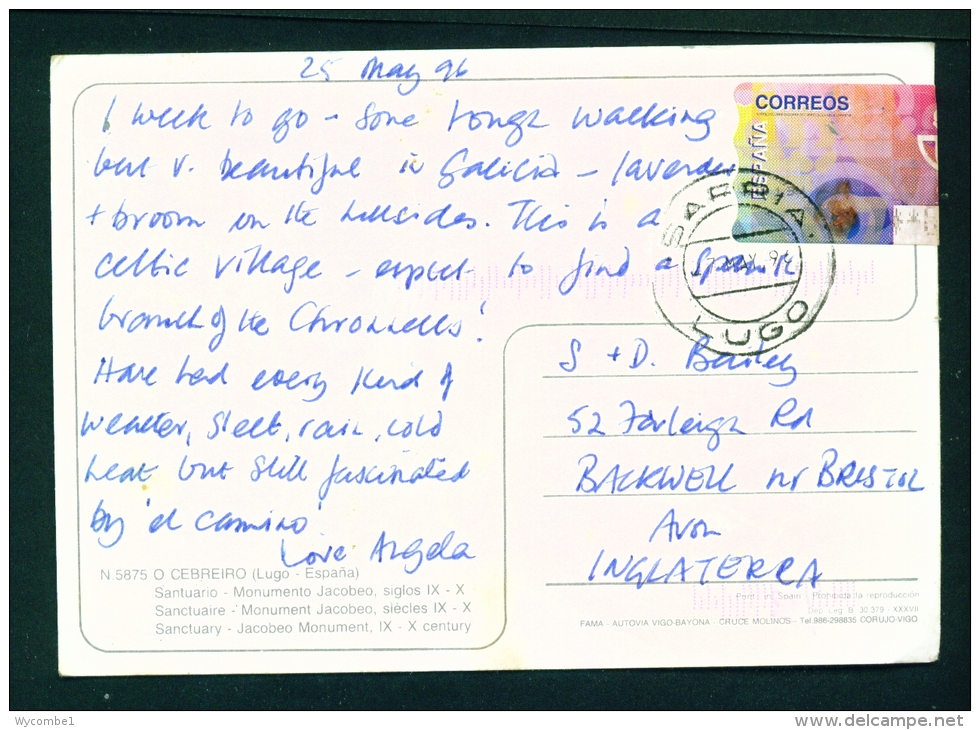 25 May 96
1 week to go - some tough walking
but v. beautiful in Galicia - lavender
+ broom on the hillsides. This is a
celtic village - expect to find a Spanish
branch of the Chronnells!
Have had every kind of
weather, sleet, rain, cold
heat but still fascinated
by 'el camino'
Love Angela
N.5875 O CEBREIRO (Lugo - España)
Santuario - Monumento Jacobeo, siglos IX - X
Sanctuaire - Monument Jacobeo, siècles IX - X
Sanctuary - Jacobeo Monument, IX - X century
CORREOS
ESPAÑA
SARRIA.
MAY 96
LUGO
S + D. Bailey
52 Farleigh Rd
BACKWELL nr BRISTOL
Avon
INGLATERRA
Print. in Spain - Prohibida la reproducción
Dep. Leg. B. 30.379 - XXXVII
FAMA - AUTOVIA VIGO-BAYONA - CRUCE MOLINOS - Tel. 986-298835 CORUJO-VIGO
Wycombe1
http://www.delcampe.net